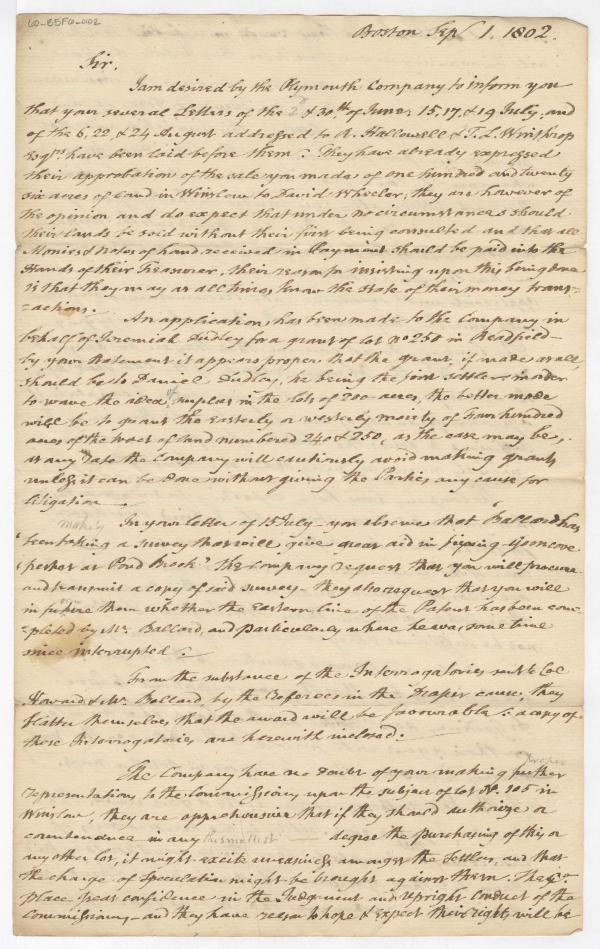 60-B5F6-002
Boston Sepr 1. 1802.
Sir.
I am desired by the Plymouth Company to inform you
that your several Letters of the 2d & 30th of June, 15, 17, & 19 July, and
of the 6, 22, & 24 August addressed to R. Hallowell & T. L. Winthrop
Esqrs have been laid before them: They have already expressed
their approbation of the sale you made of one hundred and twenty
six acres of land in Winslow to David Wheeler, they are however of
the opinion and do expect that under no circumstances should
their lands be sold without their first being consulted and that all
Monies & Notes of hand received in Payment should be paid into the
Hands of their Treasurer, their reason for insisting upon this being done
is that they may at all times know the state of their money trans-
-actions.
An application has been made to the Company in
behalf of Jeremiah Dudley for a grant of lot No 250 in Readfield-
by your statement it appears proper that the grant, if made at all,
should be to Daniel Dudley, he being the first settler - in order
to wave the idea of surplus in the lots of 200 acres, the better mode
will be to grant the Easterly or westerly moiety of Four hundred
acres of the tract of land numbered 240 & 250, as the case may be,
at any rate the Company will cautiously avoid making grants
unless it can be done without giving the Parties any cause for
litigation
In your letter of 15 July - you observe that "Ballard has
making
been taking a survey that will give great aid in fixing Yooncove
"perhps at Pond Brook" the Company request that you will procure
and transmit a copy of said survey - they also request that you will
inform them whether the Eastern line of the Patent has been com-
-pleted by Mr. Ballard, and particularly where he was, some time
since interrupted:
From the substance of the Interrogatories sent to Col
Howard & Mr. Ballard, by the Referees in the Draper cause, they
flatter themselves that the award will be favourable: a copy of
those Interrogatories are herewith inclosed:
The Company have no doubt of your making proper
further
representations to the Commissioners upon the subject of lot No. 105 in
Winslow, they are apprehensive that if they should authorize or
countenance in any the smallest degree the purchasing of this or
any other lot, it might excite uneasiness amongst the Settlers, and that
the charge of Speculation might be brought against them. The Co
place great confidence in the Judgment and upright conduct of the
Commissioners - and they have reason to hope & expect their rights will be